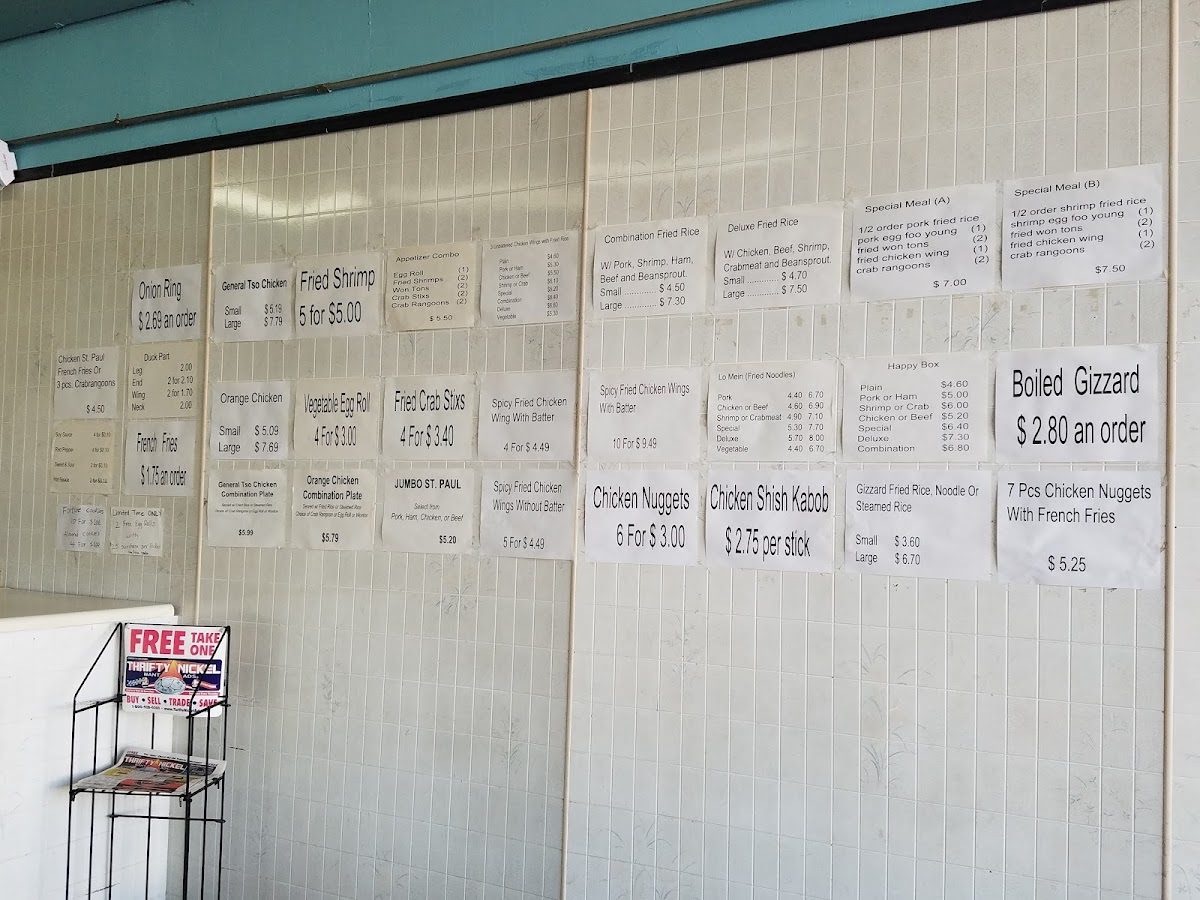 Onion Ring
$ 2.69 an order
General Tso Chicken
Small $ 5.19
Large $ 7.79
Fried Shrimp
5 for $5.00
Appetizer Combo
Egg Roll (1)
Fried Shrimps (2)
Won Tons (2)
Crab Stixs (2)
Crab Rangoons (2)
$ 5.50
Chicken Wings with Fried Rice
Plain
Pork or Ham
Chicken or Beef
Shrimp or Crab
Special
Combination
Deluxe
Vegetable
Combination Fried Rice
W/ Pork, Shrimp, Ham,
Beef and Beansprout.
Small ............ $ 4.50
Large ............ $ 7.30
Deluxe Fried Rice
W/ Chicken, Beef, Shrimp,
Crabmeat and Beansprout.
Small ............ $ 4.70
Large ............ $ 7.50
Special Meal (A)
1/2 order pork fried rice
pork egg foo young (1)
fried won tons (2)
fried chicken wing (1)
crab rangoons (2)
$ 7.00
Special Meal (B)
1/2 order shrimp fried rice
shrimp egg foo young (1)
fried won tons (2)
fried chicken wing (1)
crab rangoons (2)
$7.50
Chicken St. Paul
French Fries Or
3 pcs. Crabrangoons
$ 4.50
Duck Part
Leg 2.00
End 2 for 2.10
Wing 2 for 1.70
Neck 2.00
Orange Chicken
Small $ 5.09
Large $ 7.69
Vegetable Egg Roll
4 For $ 3.00
Fried Crab Stixs
4 For $ 3.40
Spicy Fried Chicken
Wing With Batter
4 For $ 4.49
Spicy Fried Chicken Wings
With Batter
10 For $ 9.49
Lo Mein (Fried Noodles)
Pork 4.40 6.70
Chicken or Beef 4.60 6.90
Shrimp or Crabmeat 4.90 7.10
Special 5.30 7.70
Deluxe 5.70 8.00
Vegetable 4.40 6.70
Happy Box
Plain $4.60
Pork or Ham $5.00
Shrimp or Crab $6.00
Chicken or Beef $5.20
Special $6.40
Deluxe $7.30
Combination $6.80
Boiled Gizzard
$ 2.80 an order
French Fries
$ 1.75 an order
General Tso Chicken
Combination Plate
$5.99
Orange Chicken
Combination Plate
$5.79
JUMBO ST. PAUL
Select from
Pork, Ham, Chicken, or Beef
$5.20
Spicy Fried Chicken
Wings Without Batter
5 For $ 4.49
Chicken Nuggets
6 For $ 3.00
Chicken Shish Kabob
$ 2.75 per stick
Gizzard Fried Rice, Noodle Or
Steamed Rice
Small $ 3.60
Large $ 6.70
7 Pcs Chicken Nuggets
With French Fries
$ 5.25
Limited Time ONLY
2 Free Egg Rolls
with
FREE TAKE ONE
THRIFTY NICKEL
WANT ADS
BUY • SELL • TRADE • SAVE
THRIFTY NICKEL